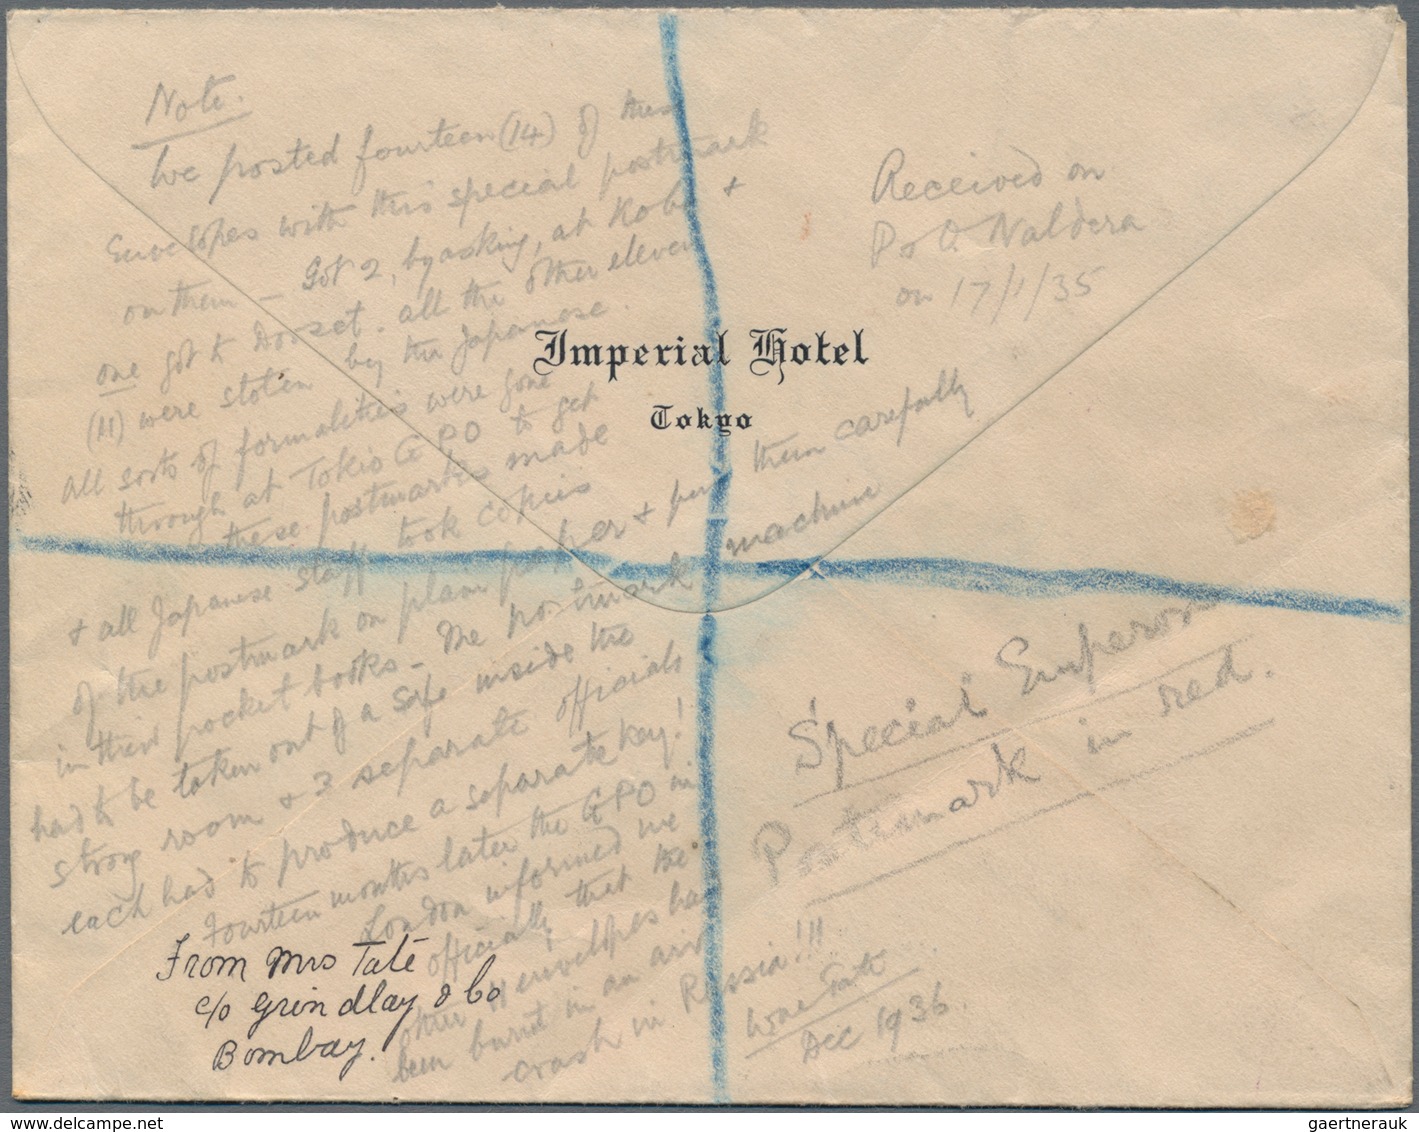 Note.
We posted fourteen (14) of these
Envelopes with this special postmark
on them – Got 2, by asking, at Kobe +
one got to Dorset. all the other eleven
(11) were stolen by the Japanese.
all sorts of formalities were gone
through at Tokio GPO to get
these postmarks made
+ all Japanese staff took copies
of the postmark on plain paper + put them carefully
in their pocket books – The postmark machine
had to be taken out of a safe inside the
strong room + 3 separate officials
each had to produce a separate key!
Fourteen months later the GPO in
London informed me
officially that the
other 11 envelopes had
been burnt in an air
crash in Russia!!!
Tate
Dec 1936.
Received on
P & O. Naldera
on 17/1/35
Imperial Hotel
Tokyo
Special Emperor
Postmark in red.
From Mrs Tate
c/o Grindlay & Co
Bombay.
gaertnerauk
www.delcampe.net